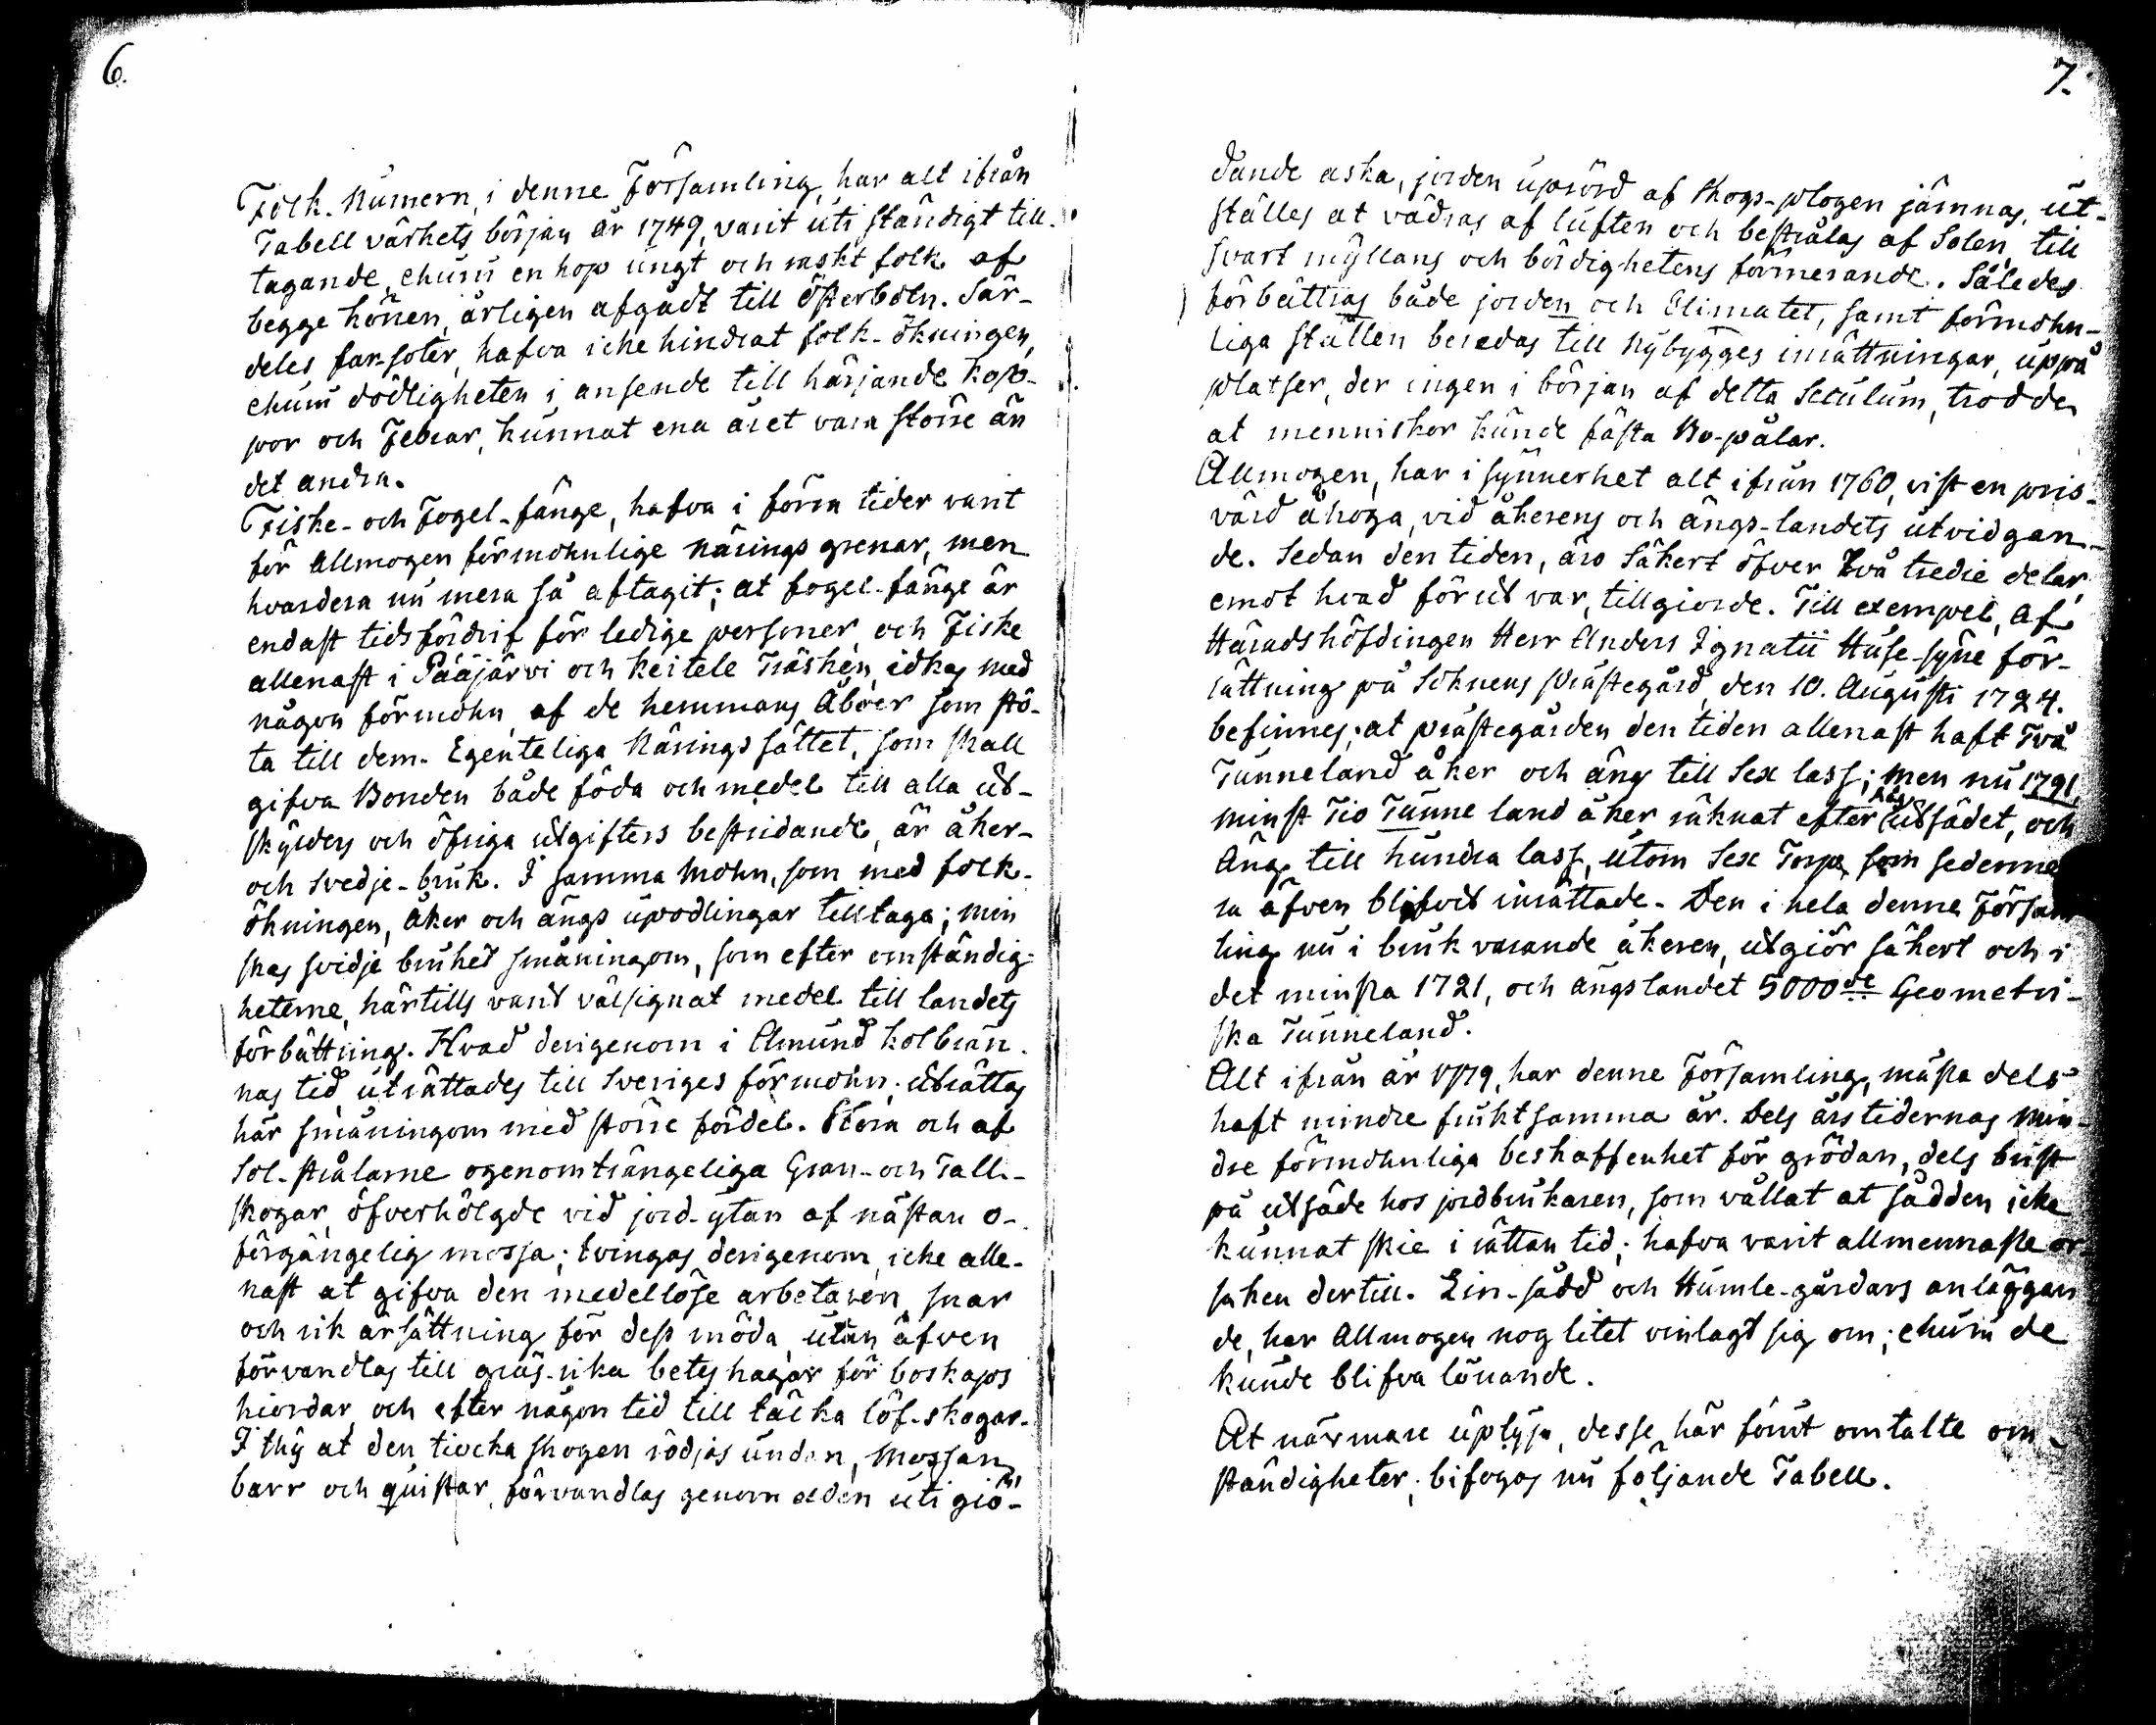 6.
Folk-Numern, i denne Församling, har alt ifrån
Tabell värkets början år 1749, varit uti ständigt till-
tagande, ehuru en hop ungt och raskt folk af
begge könen, årligen afgådt till Österboln. Sär-
deles farsoter, hafva icke hindrat folk-ökningen,
ehuru dödligheten i anseende till härjande Kop-
por och Febrar, kunnat ena året vara större än
det andra.
Fiske- och Fogel-fänge, hafva i förra tider varit
för Allmogen förmohnlige Närings grenar, men
hvardera nu mera så aftagit; at fogel-fänge är
endast tidsfördrif för ledige personer, och Fiske
allenast i Pääjärvi och Keitele Träsken, idkas med
någon förmohn af de hemmans Åboer som stö-
ta till dem. Egenteliga Näringssättet, som skall
gifva Bonden både föda och medel till alla ut-
skylders och öfriga utgifters bestridande, är åker-
och Svedje-bruk. I samma mohn, som med folk-
ökningen, åker och ängs upodlingar tilltaga; min
skas svidje bruket småningom, som efter omständig-
heterne, härtills varit välsignat medel till landets
förbättring. Hvad derigenom i Amund Kolbrän-
nas tid, uträttades till Sveriges förmohn; uträttas
här småningom med större fördel. Stora och af
Sol-strålarne ogenomträngeliga Gran- och Tall-
skogar, öfverhölgde vid jord-ytan af nästan o-
förgängelig mossa; tvingas derigenom, icke alle-
nast at gifva den medellöse arbetaren, snar
och rik ärsättning för dess möda, utan äfven
förvandlas till gräs-rika betes hagar för boskaps
hiordar, och efter någon tid till täcka löf-skogar.
I thy at den tiocka skogen rödjas undan, Mossan,
barr och quistar, förvandlas genom elden uti giö-
7.
dande aska, jorden uprörd af Skogs-plogen jämnas, ut-
ställes at vädras af luften och bestrålas af Solen, till
svart myllans och bördighetens förmerande. Således
förbättras både jorden och Climatet, samt förmohn-
liga ställen beredas till Nybygges inrättningar, uppå
platser, der ingen i början af detta Seculum, trodde
at menniskor kunde fästa Bo-pålar.
Allmogen, har i synnerhet alt ifrån 1760, vist en pris-
värd åhoga, vid åkerens och ängs-landets utvidgan-
de. Sedan den tiden, äro säkert öfver Två tredie delar,
emot hvad förut var, tillgiorde. Till exempel, af
Häradshöfdingen Herr Anders Ignatii Huse-syne för-
rättning på Soknens Prästegård, den 10. Augusti 1724.
befinnes; at prästegården den tiden allenast haft Två
Tunneland åker och äng till Sex lass; men nu 1791,
minst Tio Tunne land åker räknat efter Råg utsädet, och
Äng till hundra lass, utom Sex Torp, som sederme
ra äfven blifvit inrättade. Den i hela denne Försam
ling nu i bruk varande åkeren, utgiör säkert och i
det minsta 1721, och ängslandet 5000de Geometri-
ska Tunneland.
Alt ifrån år 1779, har denne Församling, mästa dels
haft mindre fruktsamma år. Dels årstidernas min-
dre förmohnliga beskaffenhet för grödan, dels brist
på utsäde hos jordbrukaren, som vållat at sådden icke
kunnat skie i rättan tid; hafva varit allmennaste or-
saken dertill. Lin-sådd och Humle-gårdars anläggan
de, har Allmogen nog litet vinlagt sig om; ehuru de
kunde blifva lönande.
At närmare uplysa, desse här förut omtalte om-
ständigheter; bifogas nu följande Tabell.